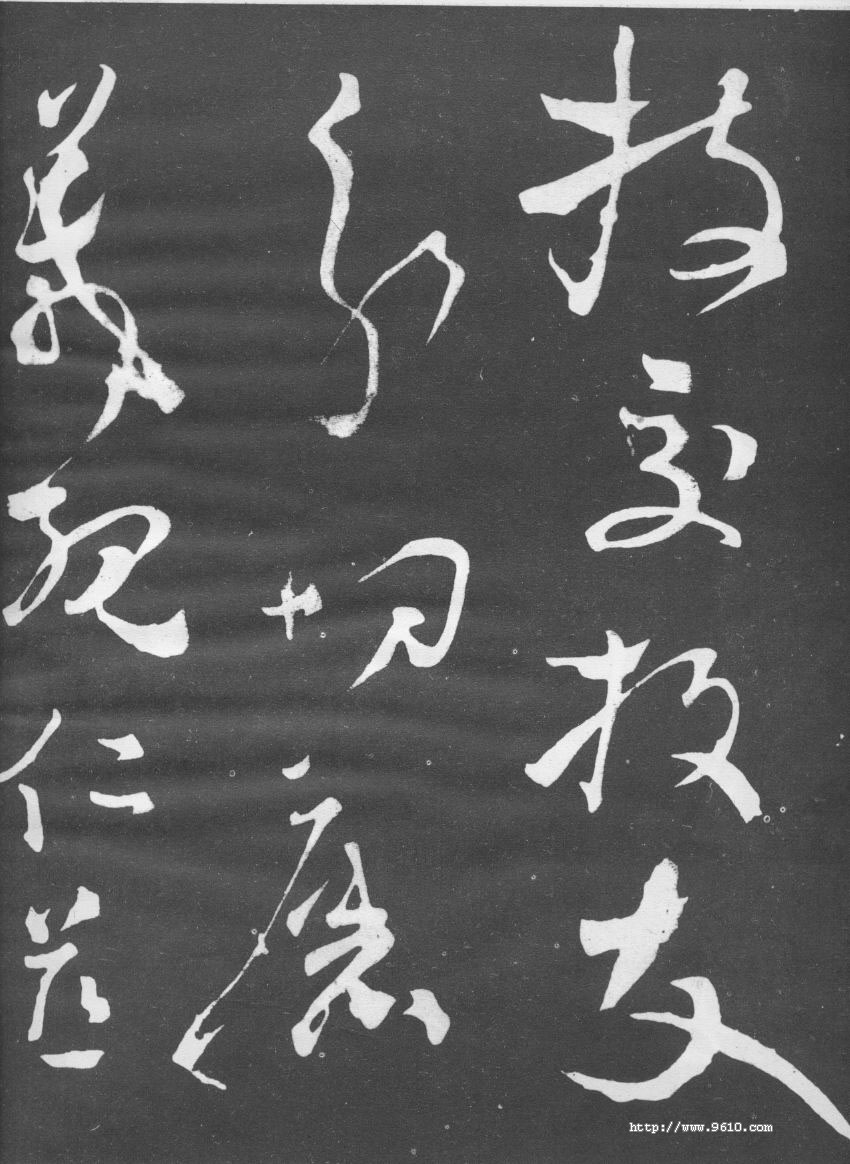 枝交投友
分切磨
箴規仁慈
http://www.9610.com